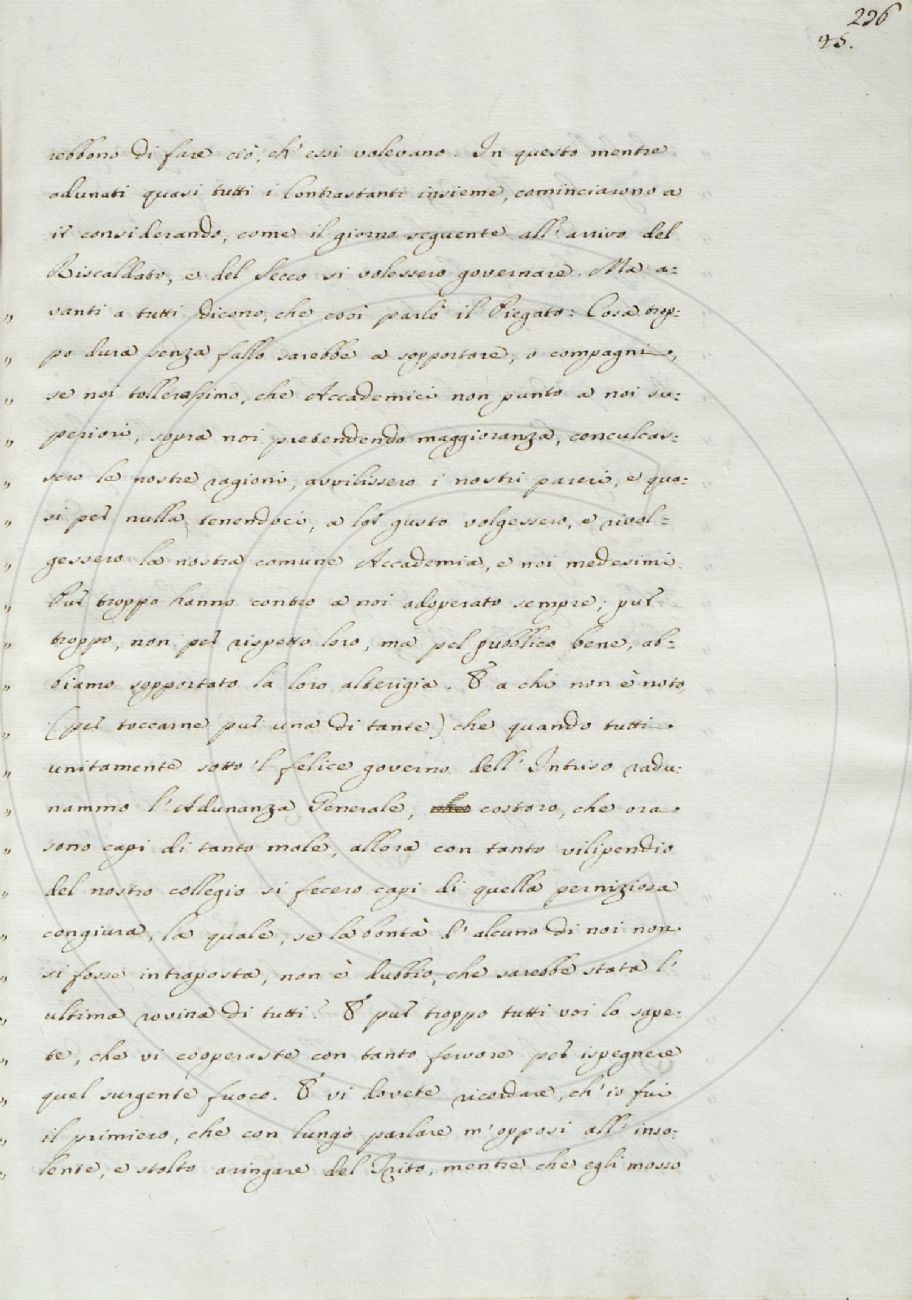 296
45.
rebbono di fare ciò, ch' essi volevano. In questo mentre
adunati quasi tutti i Contrastanti insieme, cominciarono a
ir considerando, come il giorno seguente all' arrivo del
Riscaldato, e del Secco si volessero governare. Ma a=
„ vanti a tutti dicono, che così parlò il Piegato: Cosa trop=
„ po dura senza fallo sarebbe a sopportare, o compagni,
„ se noi tollerassimo, che Accademici non punto a noi su=
„ periori, sopra noi pretendendo maggioranza, conculcas=
„ sero le nostre ragioni, avvilissero i nostri pareri, e qua=
„ si per nulla tenendoci, a lor gusto volgessero, e rivol=
„ gessero la nostra comune Accademia, e noi medesimi.
„ Pur troppo hanno contro a noi adoperato sempre; pur
„ troppo, non per rispetto loro, ma pel pubblico bene, ab=
„ biamo sopportato la loro alterigia. E a chi non è noto
„ (per toccarne pur una di tante) che quando tutti
„ unitamente sotto 'l felice governo dell' Intriso radu=
„ nammo l' Adunanza Generale, costoro, che ora
„ sono capi di tanto male, allora con tanto vilipendio
„ del nostro collegio si fecero capi di quella perniziosa
„ congiura, la quale, se la bontà d' alcuno di noi non
„ si fosse intraposta, non è dubbio, che sarebbe stata l'
„ ultima rovina di tutti? E pur troppo tutti voi lo sape=
„ te, che vi cooperaste con tanto fervore per ispegnere
„ quel surgente fuoco. E vi dovete ricordare, ch' io fui
„ il primiero, che con lungo parlare m' opposi all' inso=
„ lente, e stolto aringare del Trito, mentre che egli mosso